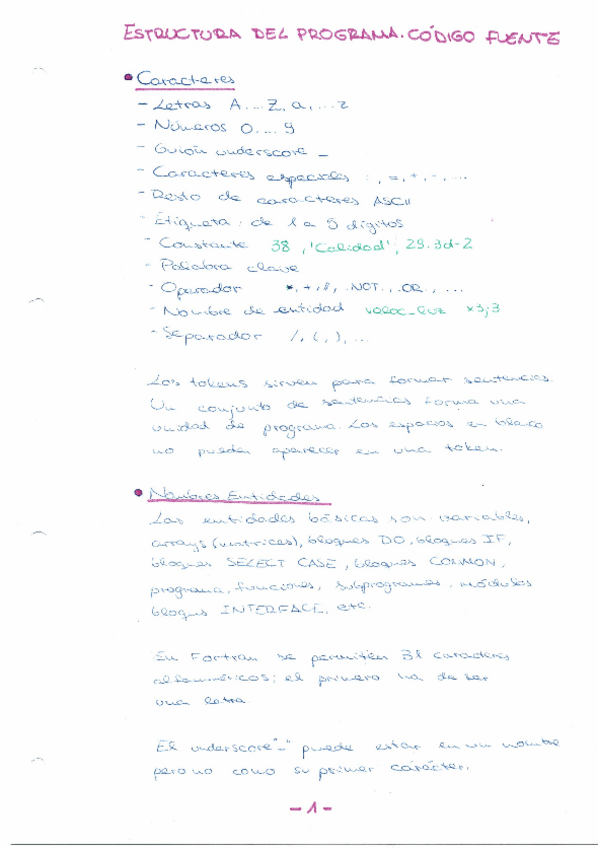 ESTRUCTURA DEL PROGRAMA. CÓDIGO FUENTE
• Caracteres
- Letras A....Z, a,....z
- Números 0....9
- Guión underscore _
- Caracteres especiales : , =, +, -, ...
- Resto de caracteres ASCII
- Etiqueta: de 1 a 5 dígitos
- Constante 38, 'Calidad', 29.3d-2
- Palabra clave
- Operador *, +, //, .NOT., .OR., ...
- Nombre de entidad veloc_luz x3j3
- Separador /, (, ), ...
Los tokens sirven para formar sentencias.
Un conjunto de sentencias forma una
unidad de programa. Los espacios en blanco
no pueden aparecer en una token.
• Nombres Entidades
Las entidades básicas son variables,
arrays (matrices), bloques DO, bloques IF,
bloques SELECT CASE, bloques COMMON,
programa, funciones, subprogramas, módulos
bloques INTERFACE, etc.
En Fortran se permiten 31 caracteres
alfanuméricos; el primero ha de ser
una letra
El underscore "_" puede estar en un nombre
pero no como su primer carácter.
- 1 -